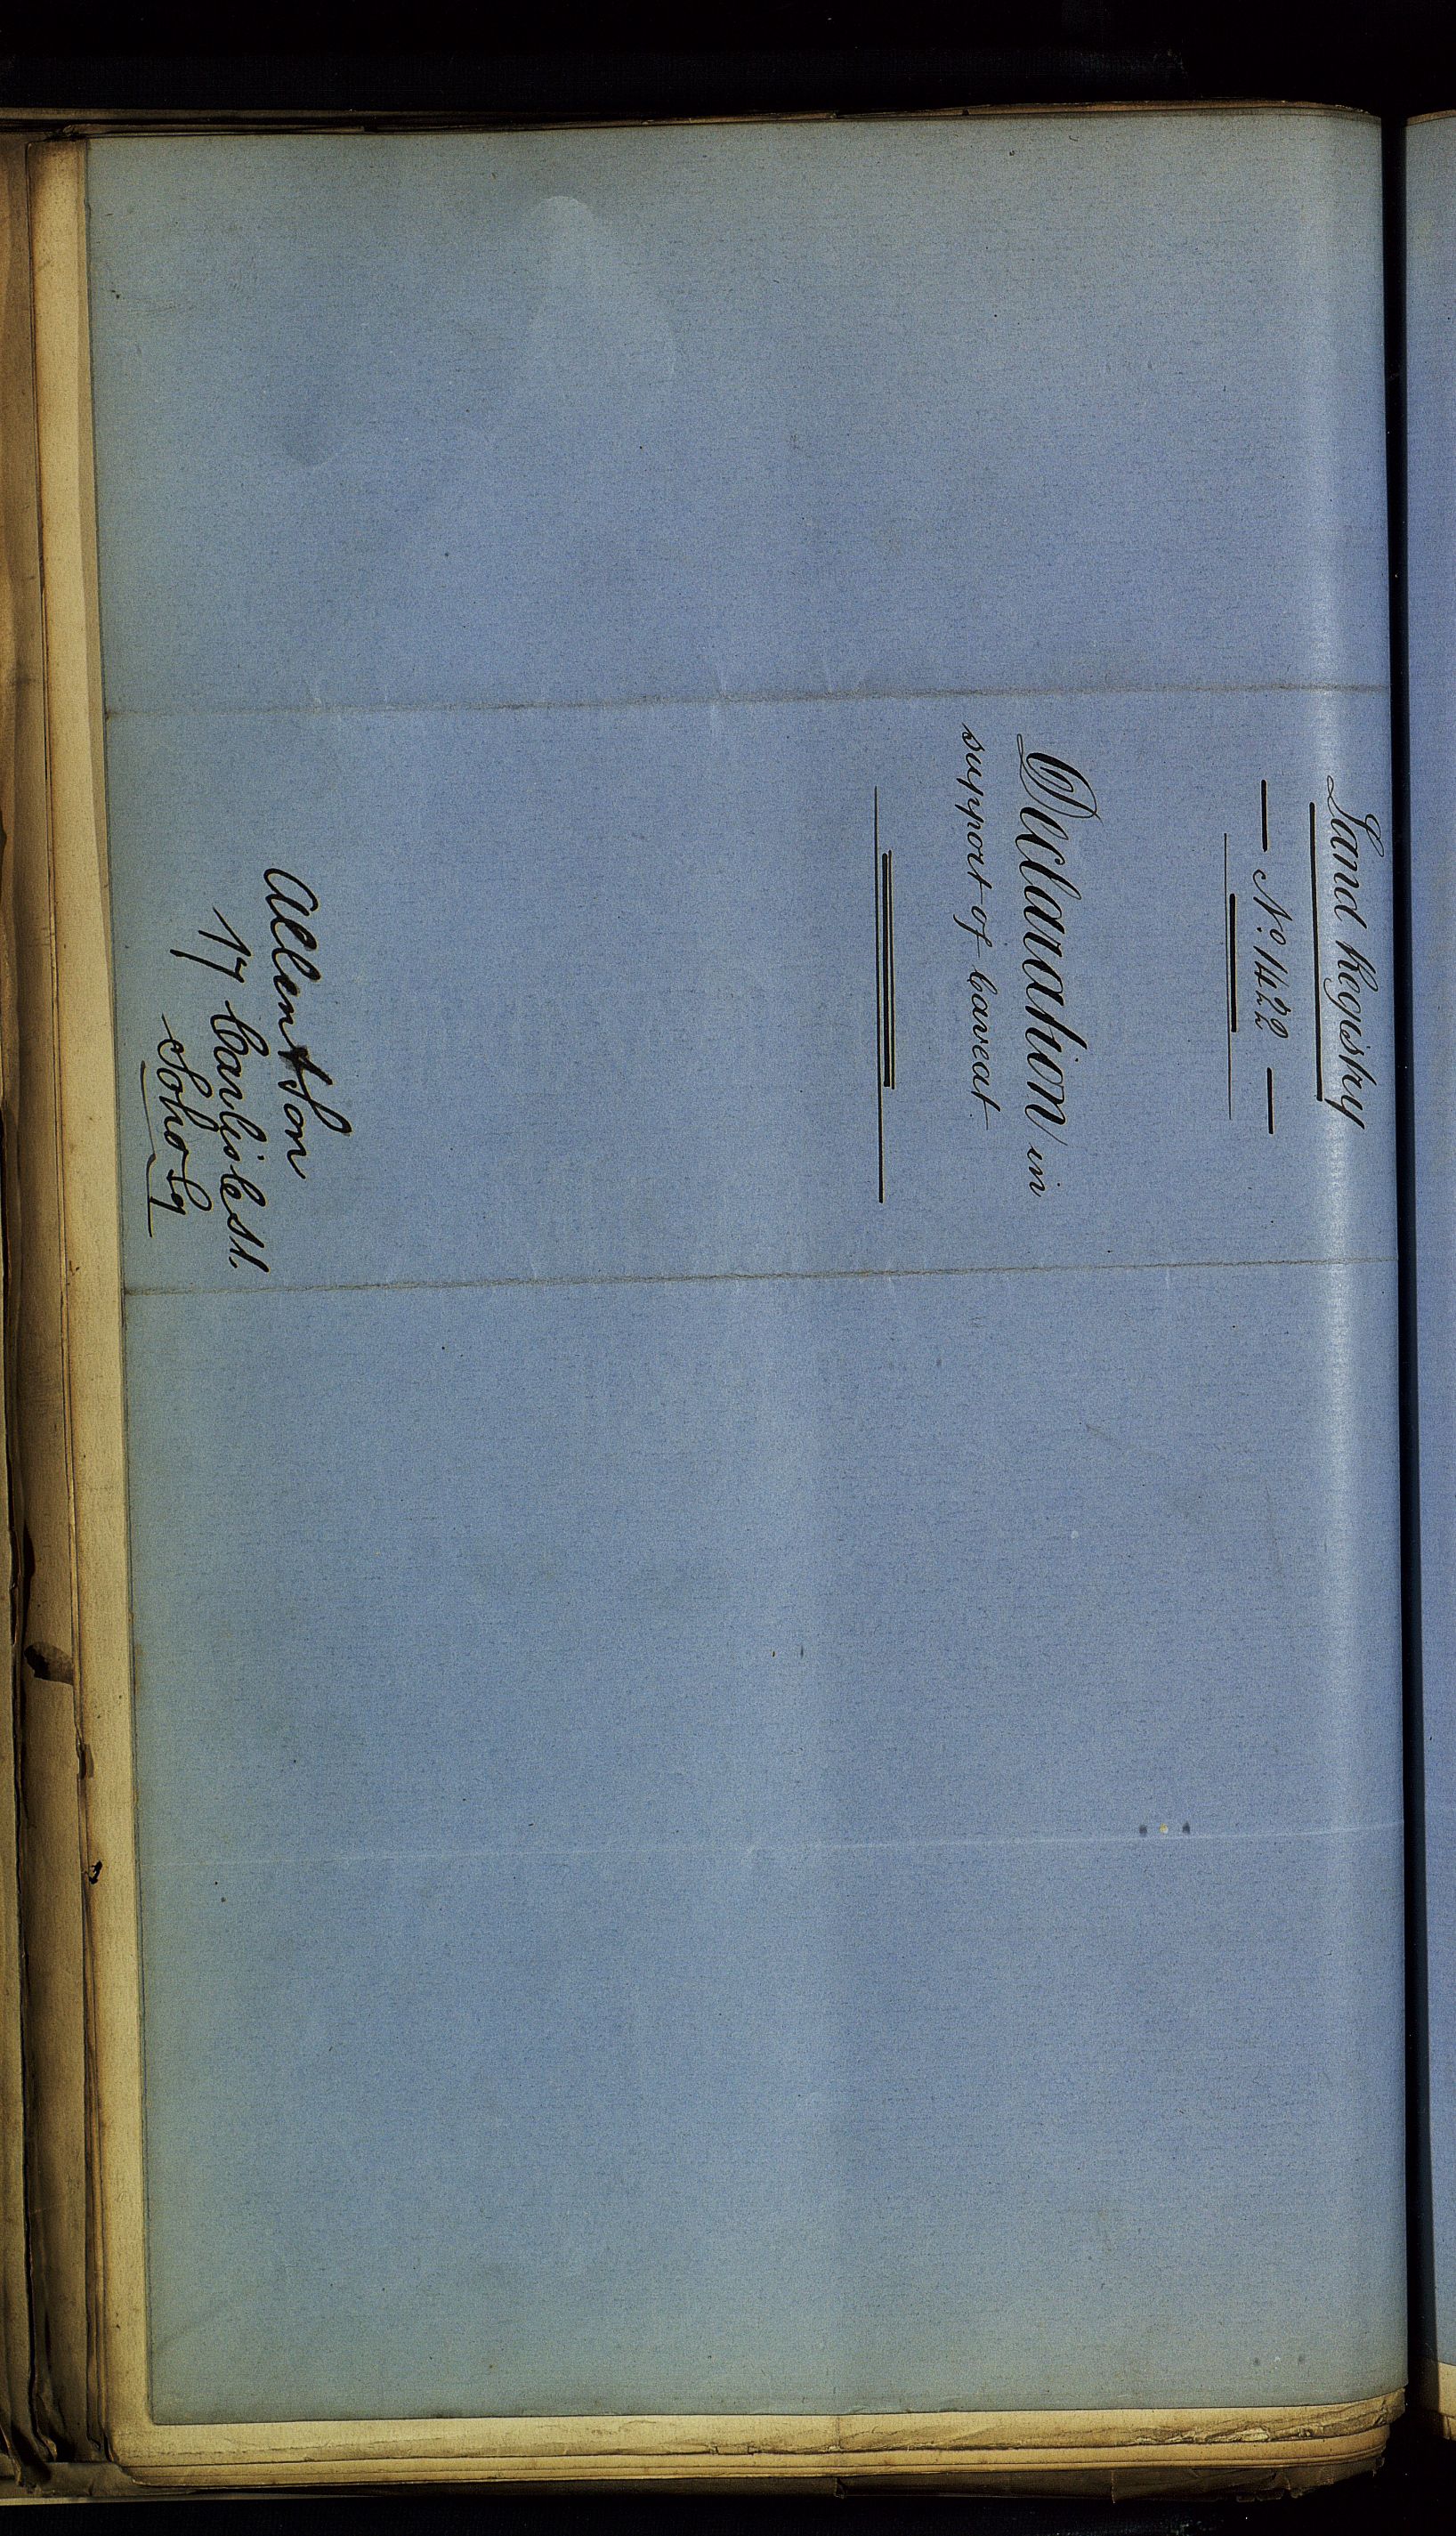 Land Registry
— No. 1422 —
Declaration in
support of Caveat
Allen & Son
17 Carlisle St.
Soho Sq